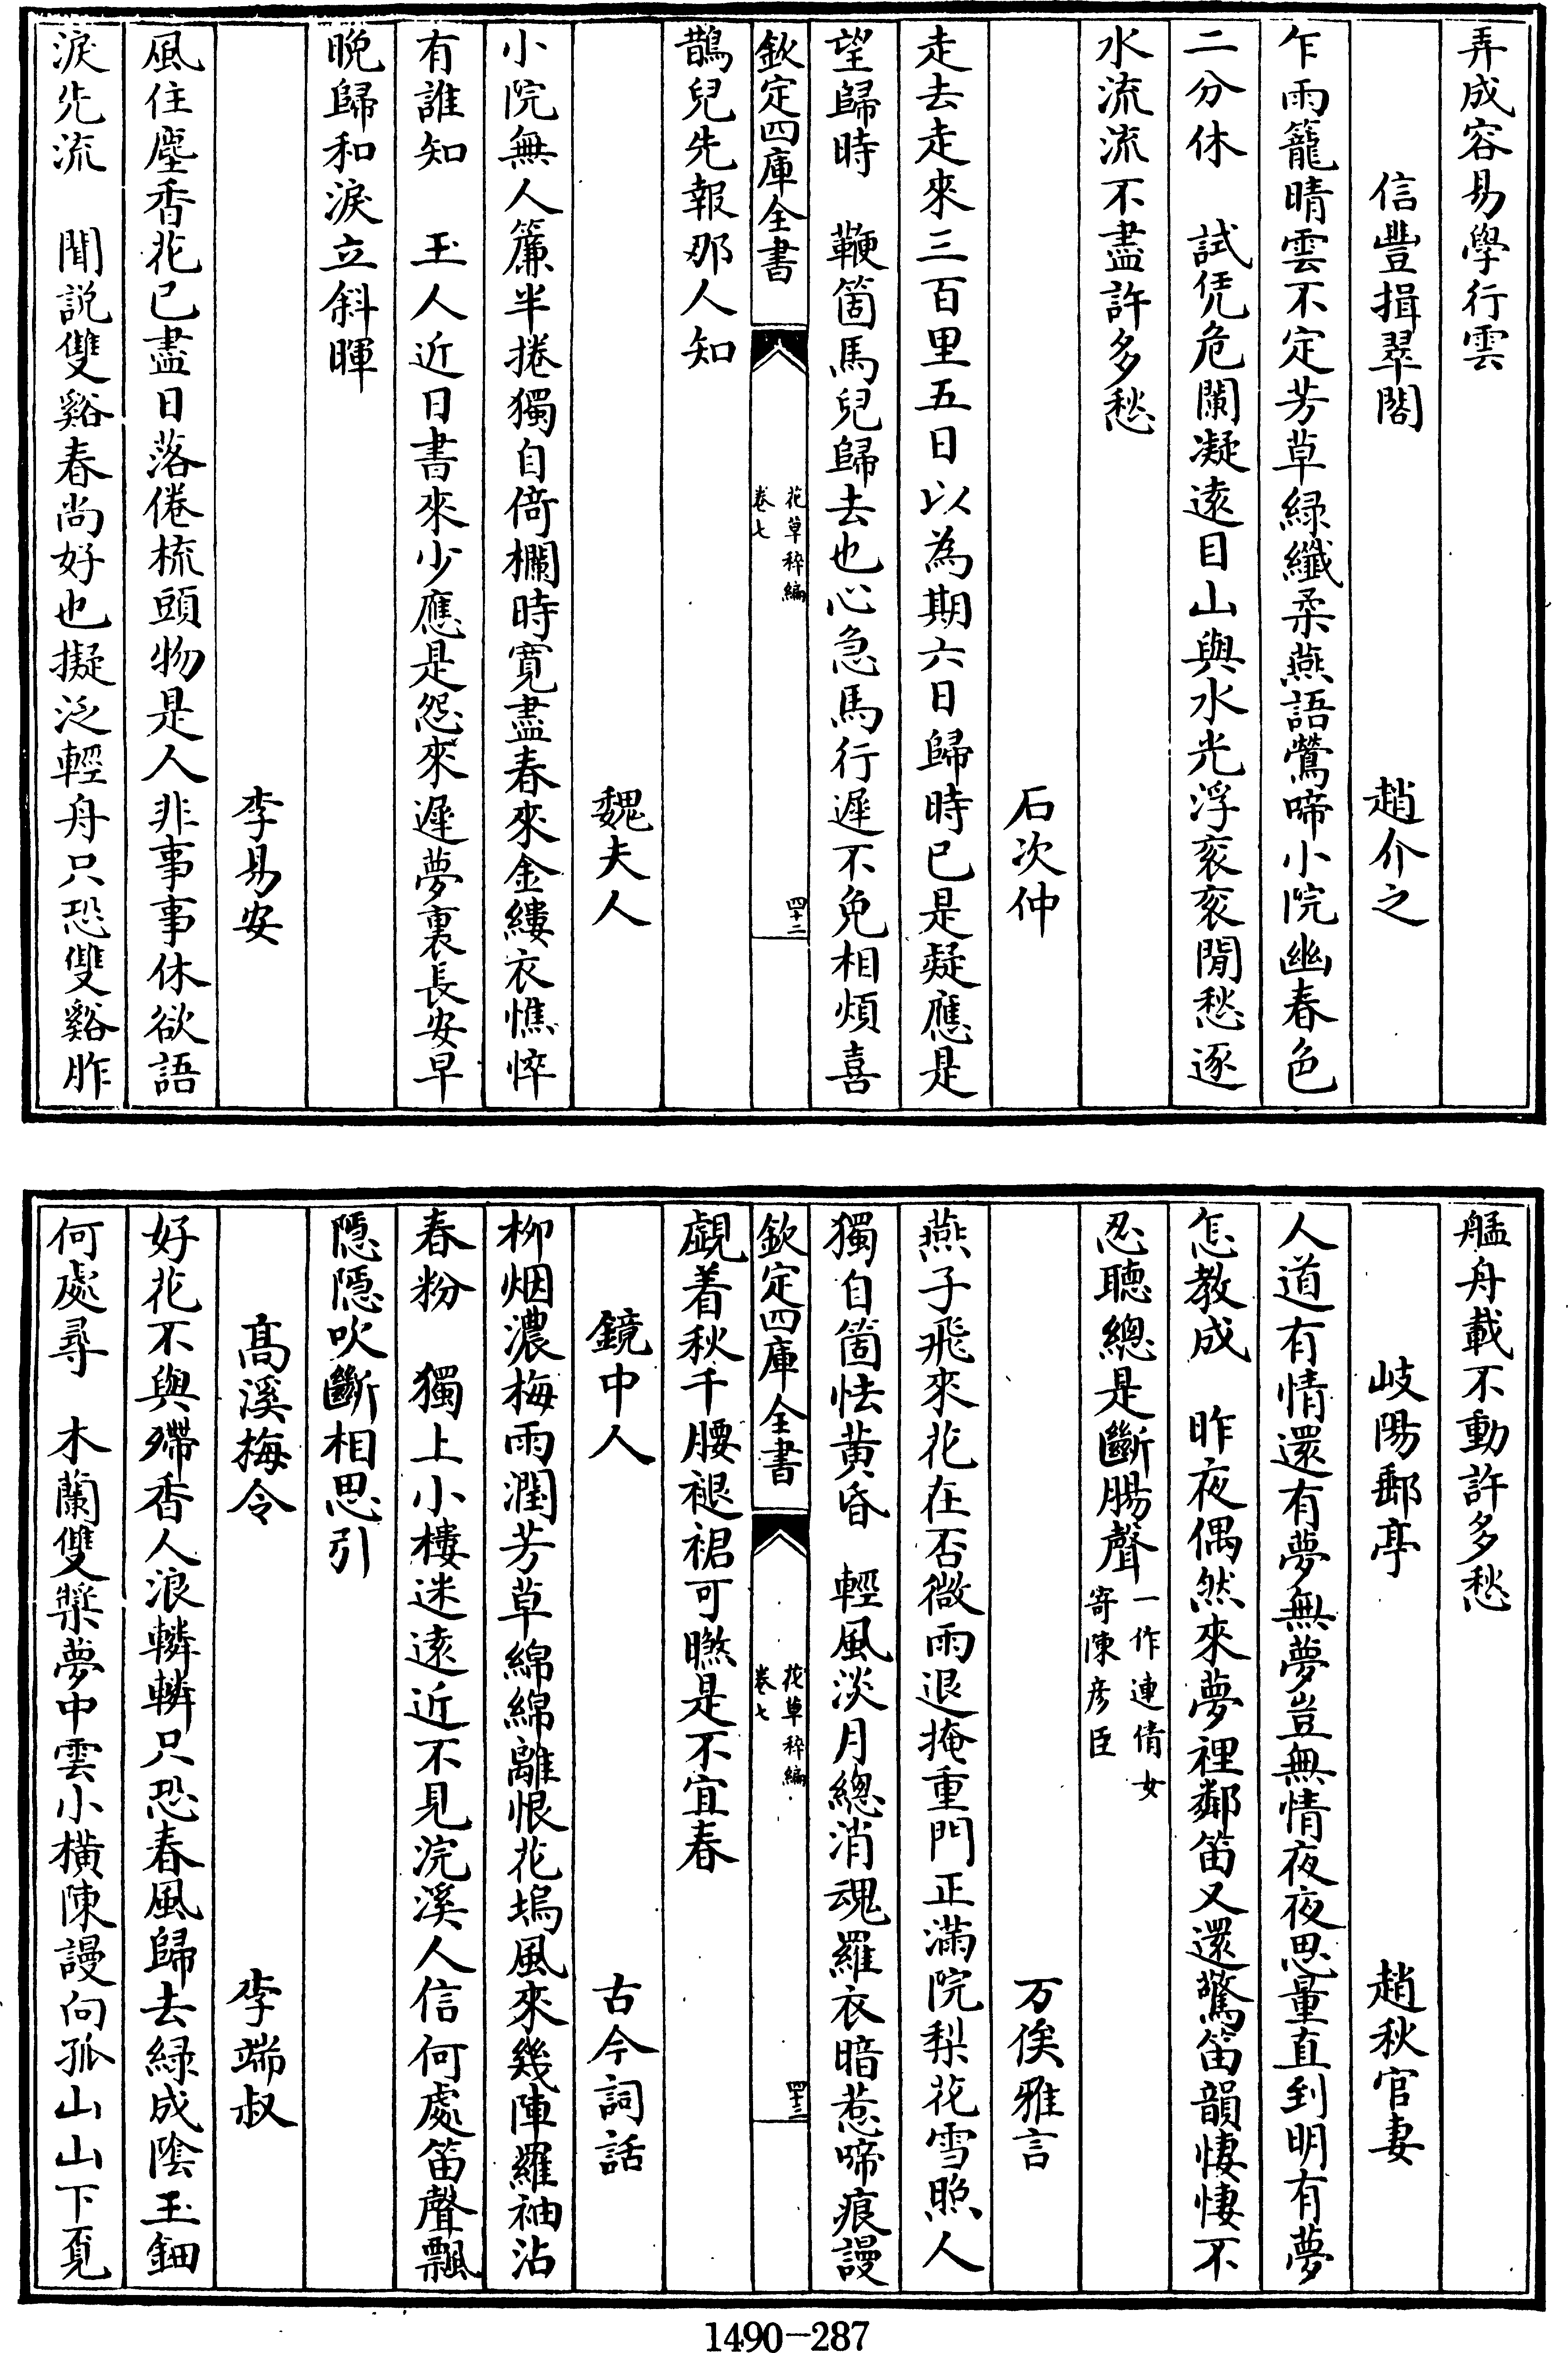 弄成容易學行雲
信豐揖翠閣　趙介之
乍雨籠晴雲不定芳草緑纖柔燕語鶯啼小院幽春色
二分休　試凭危闌凝逺目山與水光浮衮衮閒愁逐
水流流不盡許多愁
石次仲
走去走來三百里五日以為期六日歸時已是疑應是
望歸時　鞭箇馬兒歸去也心急馬行遲不免相煩喜
欽定四庫全書　花草稡編　卷七　四十二
鵲兒先報那人知
魏夫人
小院無人簾半捲獨自倚欄時寛盡春來金縷衣憔悴
有誰知　玉人近日書來少應是怨來遲夢裏長安早
晩歸和淚立斜暉
李易安
風住塵香花已盡日落倦梳頭物是人非事事休欲語
淚先流　聞説雙谿春尚好也擬泛輕舟只恐雙谿舴
艋舟載不動許多愁
岐陽郵亭　趙秋官妻
人道有情還有夢無夢豈無情夜夜思量直到明有夢
怎教成　昨夜偶然來夢裡鄰笛又還驚笛韻悽悽不
忍聴總是斷腸聲一作連倩女寄陳彦臣
万俟雅言
燕子飛來花在否微雨退掩重門正滿院梨花雪照人
獨自箇怯黄昏　輕風淡月總消魂羅衣暗惹啼痕謾
欽定四庫全書　花草稡編　卷七　四十三
覷着秋千腰褪裙可㬠是不宜春
鏡中人　古今詞話
柳烟濃梅雨潤芳草綿綿離恨花塢風來幾陣羅袖沾
春粉　獨上小樓迷逺近不見浣溪人信何處笛聲飄
隠隠吹斷相思引
髙溪梅令　李端叔
好花不與殢香人浪轔轔只恐春風歸去緑成隂玉鈿
何處尋　木蘭雙槳夢中雲小横陳謾向孤山山下覓
1490—287